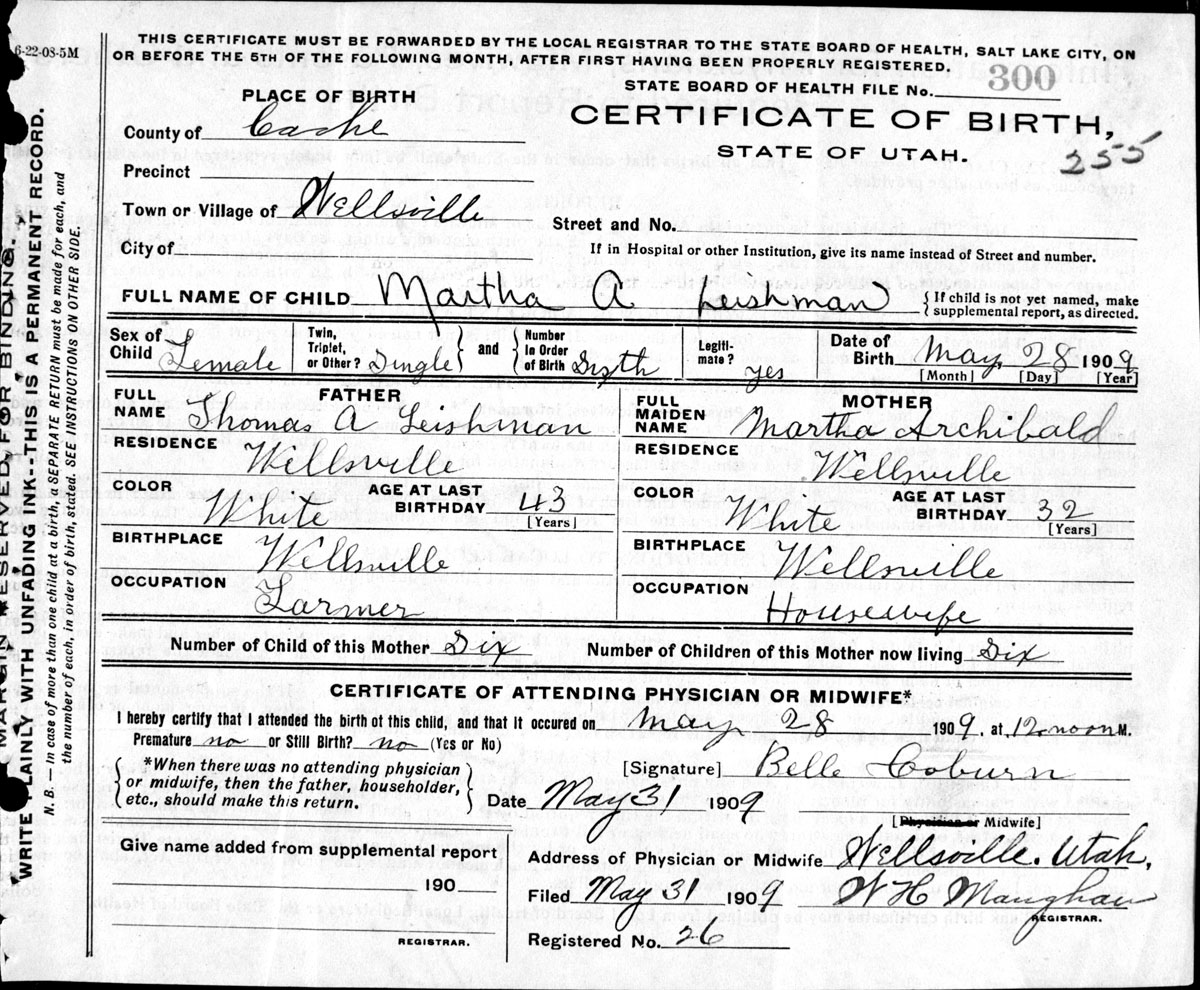 6-22-08-5M
THIS CERTIFICATE MUST BE FORWARDED BY THE LOCAL REGISTRAR TO THE STATE BOARD OF HEALTH, SALT LAKE CITY, ON
OR BEFORE THE 5TH OF THE FOLLOWING MONTH, AFTER FIRST HAVING BEEN PROPERLY REGISTERED.
STATE BOARD OF HEALTH FILE No. 300
PLACE OF BIRTH
CERTIFICATE OF BIRTH,
STATE OF UTAH.
255
County of Cache
Precinct
Town or Village of Wellsville
Street and No.
City of
If in Hospital or other Institution, give its name instead of Street and number.
FULL NAME OF CHILD Martha A Leishman { If child is not yet named, make
supplemental report, as directed.
Sex of Child Female
Twin, Triplet, or Other? Single } and { Number in Order of Birth Sixth
Legiti-mate? yes
Date of Birth May 28 1909
[Month] [Day] [Year]
FATHER
FULL NAME Thomas A Leishman
RESIDENCE Wellsville
COLOR White AGE AT LAST BIRTHDAY 43
[Years]
BIRTHPLACE Wellsville
OCCUPATION Farmer
MOTHER
FULL MAIDEN NAME Martha Archibald
RESIDENCE Wellsville
COLOR White AGE AT LAST BIRTHDAY 32
[Years]
BIRTHPLACE Wellsville
OCCUPATION Housewife
Number of Child of this Mother Six Number of Children of this Mother now living Six
CERTIFICATE OF ATTENDING PHYSICIAN OR MIDWIFE*
I hereby certify that I attended the birth of this child, and that it occured on May 28 1909, at 12 noon M.
Premature no or Still Birth? no (Yes or No)
{ *When there was no attending physician
or midwife, then the father, householder,
etc., should make this return. }
[Signature] Belle Coburn
Date May 31 1909
[Physician or Midwife]
Give name added from supplemental report
190
REGISTRAR.
Address of Physician or Midwife Wellsville. Utah.
Filed May 31 1909 W H Maughan
REGISTRAR.
Registered No. 26
MARGIN RESERVED FOR BINDING.
WRITE PLAINLY WITH UNFADING INK--THIS IS A PERMANENT RECORD.
N. B. — In case of more than one child at a birth, a SEPARATE RETURN must be made for each, and
the number of each, in order of birth, stated. SEE INSTRUCTIONS ON OTHER SIDE.